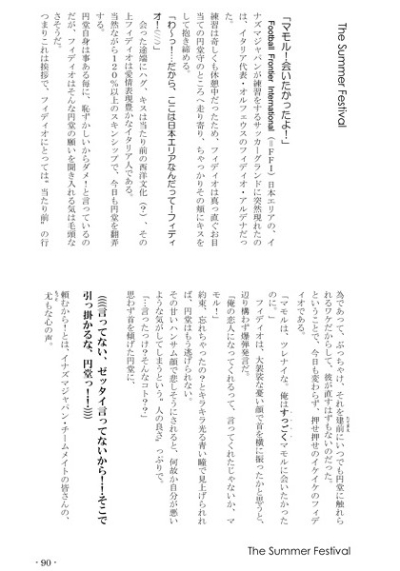 The Summer Festival
「マモルー会いたかったよー！」
Football Frontier International（＝ＦＦＩ）日本エリアの、イ
ナズマジャパンが練習をするサッカーグランドに突然現れたの
は、イタリア代表・オルフェウスのフィディオ・アルデナだっ
た。
練習は奇しくも休憩中だったため、フィディオは真っ直ぐお目
当ての円堂守のところへ走り寄り、ちゃっかりその頬にキスを
して抱き締める。
「わ～っ！…だから、ここは日本エリアなんだって！フィディ
オー(；；；)」
会った途端にハグ、キスは当たり前の西洋文化（？）、その
上フィディオは愛情表現豊かなイタリア人である。
当然ながら１２０％以上のスキンシップで、今日も円堂を翻弄
する。
円堂自身は事ある毎に、恥ずかしいからダメ！と言っているの
だが、フィディオはそんな円堂の願いを聞き入れる気は毛頭な
さそうだ。
つまりこれは挨拶で、フィディオにとっては〝当たり前〟の行
為であって、ぶっちゃけ、それを建前にいつでも円堂に触れら
れるワケだからして、彼が直すはずもないのだった。
ということで、今日も変わらず、押せ押せのイケイケのフィデ
ィオである。
「マモルは、ツレナイな。俺はすっごくマモルに会いたかった
のに。」
フィディオは、大袈裟な憂い顔で首を横に振ったかと思うと、
辺り構わず爆弾発言だ。
「俺の恋人になってくれるって、言ってくれたじゃないか、マ
モル！」
約束、忘れちゃったの？とキラキラ光る青い瞳で見上げられれ
ば、円堂はもう逃げられない。
その甘いハンサム顔で悲しそうにされると、何故か自分が悪い
ような気がしてしまうという〝人の良さ〟っぷりで。
「…言ったっけ？そんなコト？？」
思わず首を傾げた円堂に、
(((((言ってない、ゼッタイ言ってないから！！そこで
引っ掛かるな、円堂っ！！)))))
頼むから！とは、イナズマジャパン・チームメイトの皆さんの、
尤もな心の声。
The Summer Festival
・90・